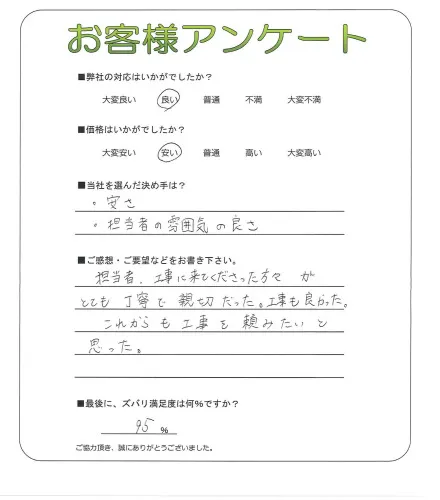 お客様アンケート
■弊社の対応はいかがでしたか?
大変良い 良い 普通 不満 大変不満
■価格はいかがでしたか?
大変安い 安い 普通 高い 大変高い
■当社を選んだ決め手は?
・安さ
・担当者の雰囲気の良さ
■ご感想・ご要望などをお書き下さい。
担当者、工事に来てくださった方々が
とても丁寧で親切だった。工事も良かった。
これからも工事を頼みたいと
思った。
■最後に、ズバリ満足度は何%ですか?
95 %
ご協力頂き、誠にありがとうございました。